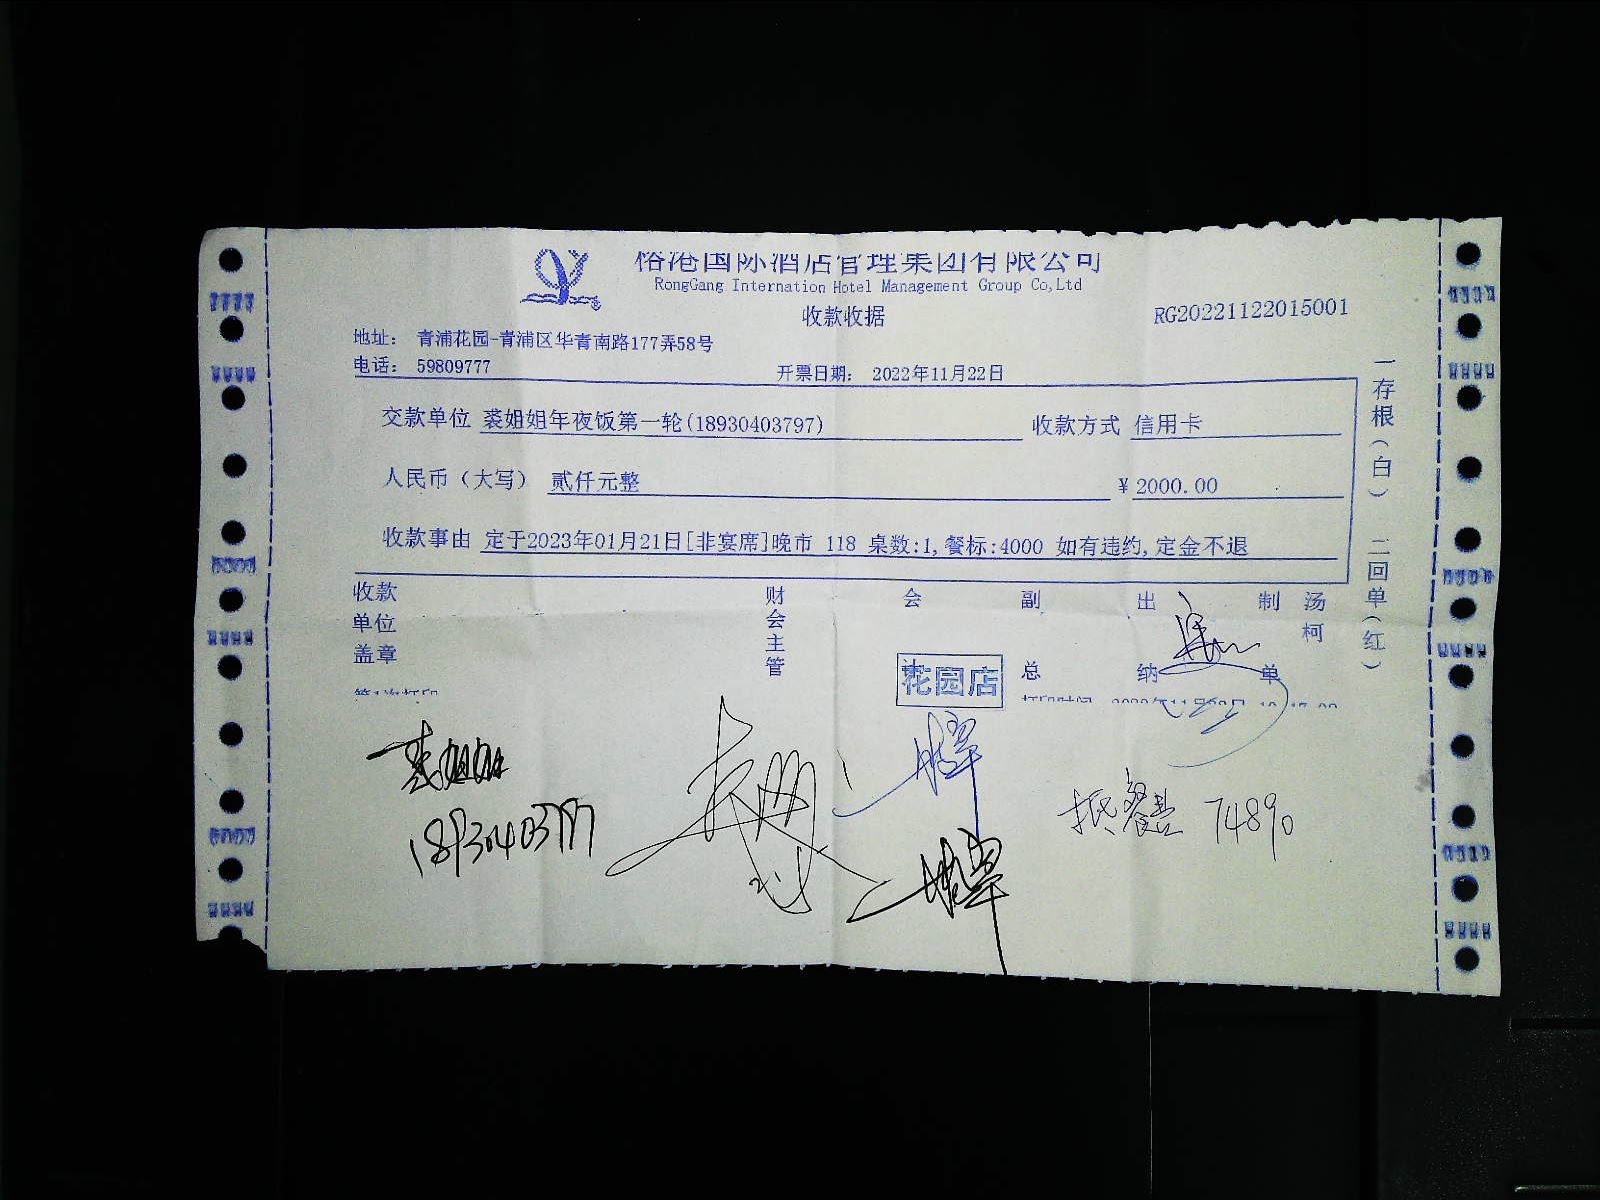 俗港国际酒店管理集团有限公司
RongGang Internation Hotel Management Group Co,Ltd
收款收据
RG20221122015001
地址： 青浦花园-青浦区华青南路177弄58号
电话： 59809777
开票日期： 2022年11月22日
交款单位 裘姐姐年夜饭第一轮(18930403797) 收款方式 信用卡
人民币（大写） 贰仟元整 ￥2000.00
收款事由 定于2023年01月21日[非宴席]晚市 118 桌数:1,餐标:4000 如有违约,定金不退
一存根（白） 二回单（红）
收款单位盖章
财会主管
会
副总
出纳
制单
汤柯
花园店
裘姐姐
抵餐费 74890